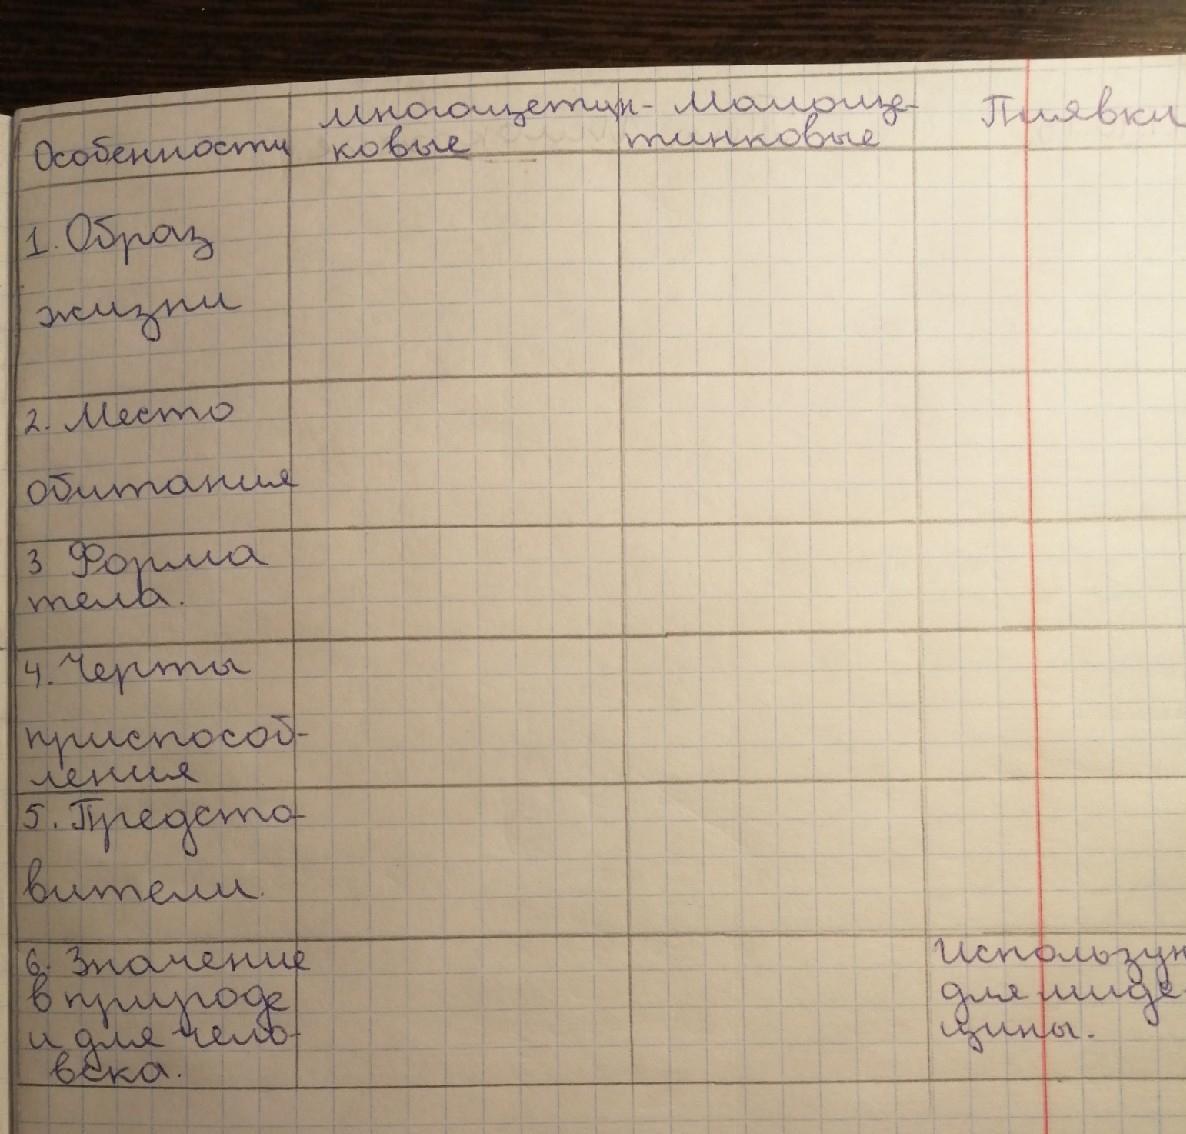 Особенности
многощетин-
ковые
Малоще-
тинковые
Пиявки
1. Образ
жизни
2. Место
обитания
3 Форма
тела.
4. Черты
приспособ-
ления
5. Предста-
вители.
6. Значение
в природе
и для чело-
века.
Использую
для
цины.